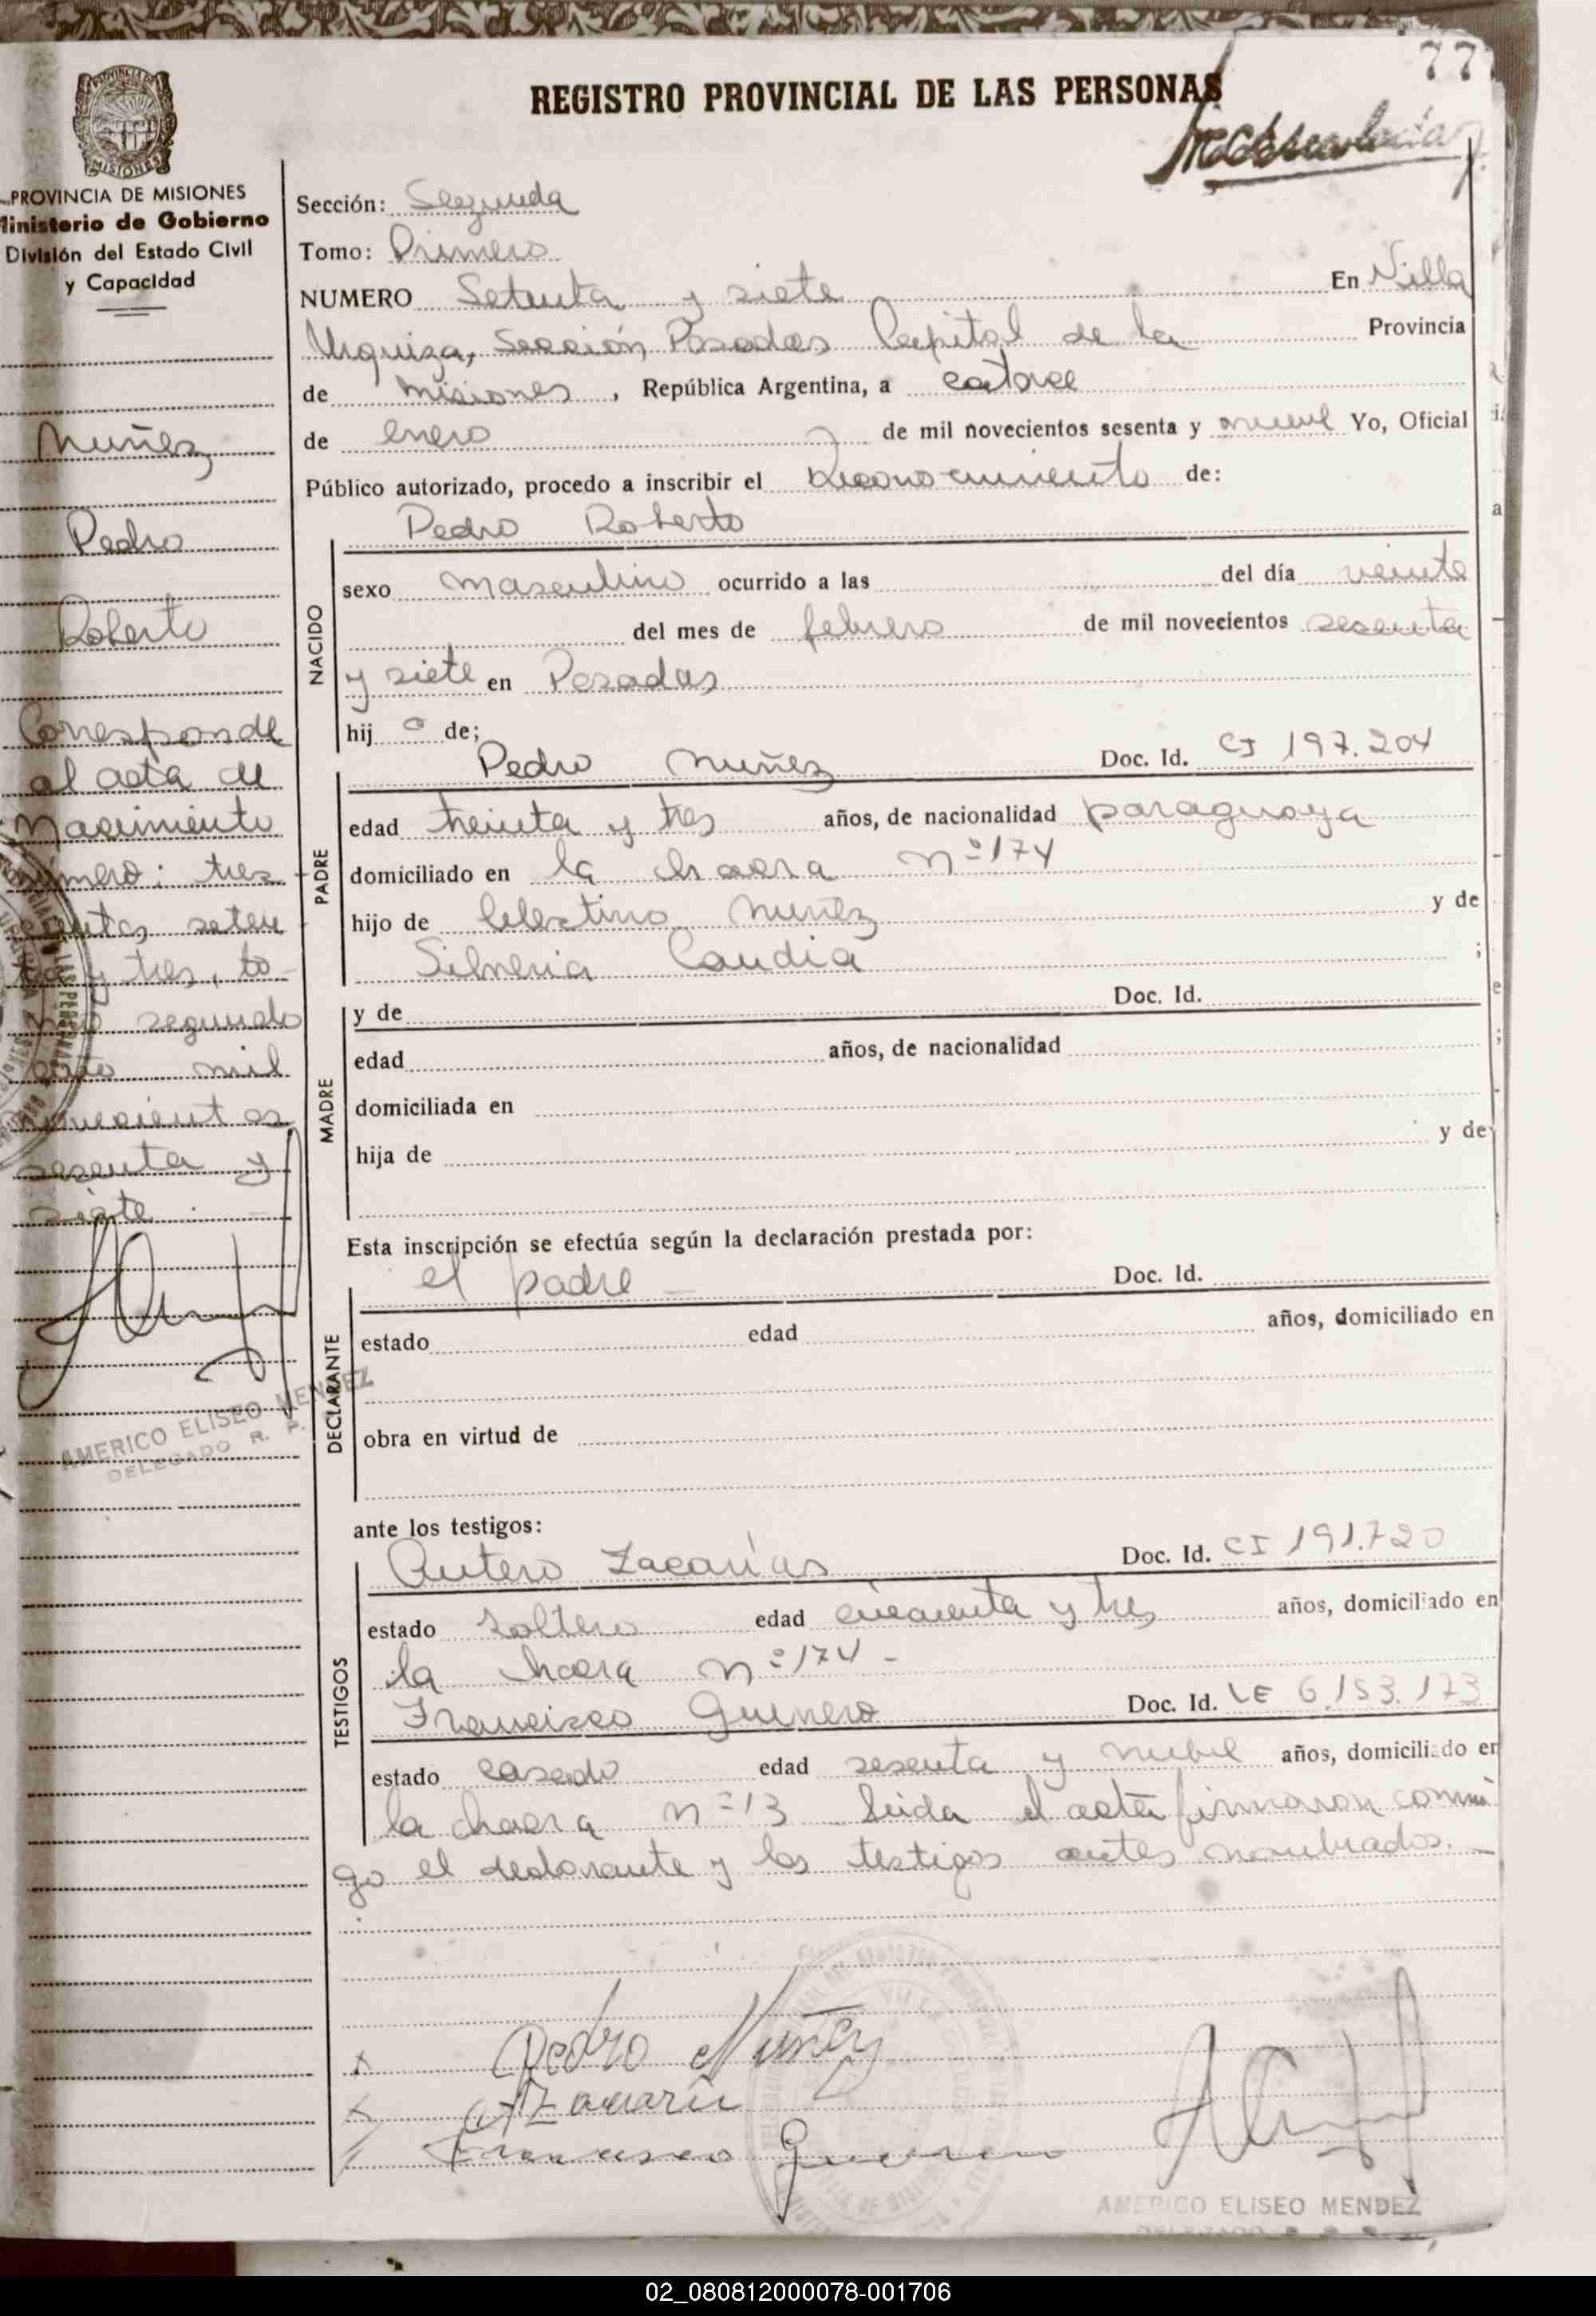 77
REGISTRO PROVINCIAL DE LAS PERSONAS
PROVINCIA DE MISIONES
Ministerio de Gobierno
División del Estado Civil
y Capacidad
Nuñez
Pedro
Roberto
Corresponde
al acta de
Nacimiento
número: tres
cientos seten
ta y tres, to-
mo segundo
año mil
novecientos
sesenta y
siete
AMERICO ELISEO MENDEZ
DELEGADO R. P.
Sección: Segunda
Tomo: Primero
NUMERO Setenta y siete En Villa
Urquiza, Sección Posadas Capital de la Provincia
de Misiones, República Argentina, a catorce
de enero de mil novecientos sesenta y nueve Yo, Oficial
Público autorizado, procedo a inscribir el Reconocimiento de:
Pedro Roberto
NACIDO
sexo masculino ocurrido a las del día veinte
del mes de febrero de mil novecientos sesenta
y siete en Posadas
hij o de;
Pedro Nuñez Doc. Id. CI 197.204
PADRE
edad treinta y tres años, de nacionalidad paraguaya
domiciliado en la chacra nº 174
hijo de Celestino Nuñez y de
Silveria Candia ;
MADRE
y de Doc. Id.
edad años, de nacionalidad
domiciliada en
hija de y de
Esta inscripción se efectúa según la declaración prestada por:
el padre - Doc. Id.
DECLARANTE
estado edad años, domiciliado en
obra en virtud de
ante los testigos:
Antero Zacarías Doc. Id. CI 191.720
TESTIGOS
estado soltero edad cincuenta y tres años, domiciliado en
la chacra nº 174 -
Francisco Guerrero Doc. Id. LE 6.153.173
estado casado edad sesenta y nueve años, domiciliado en
la chacra nº 13 Leida el acta firmaron conmi
go el declarante y los testigos antes nombrados. -
Pedro Nuñez
A Zacarías
Francisco Guerrero
AMERICO ELISEO MENDEZ
02_080812000078-001706